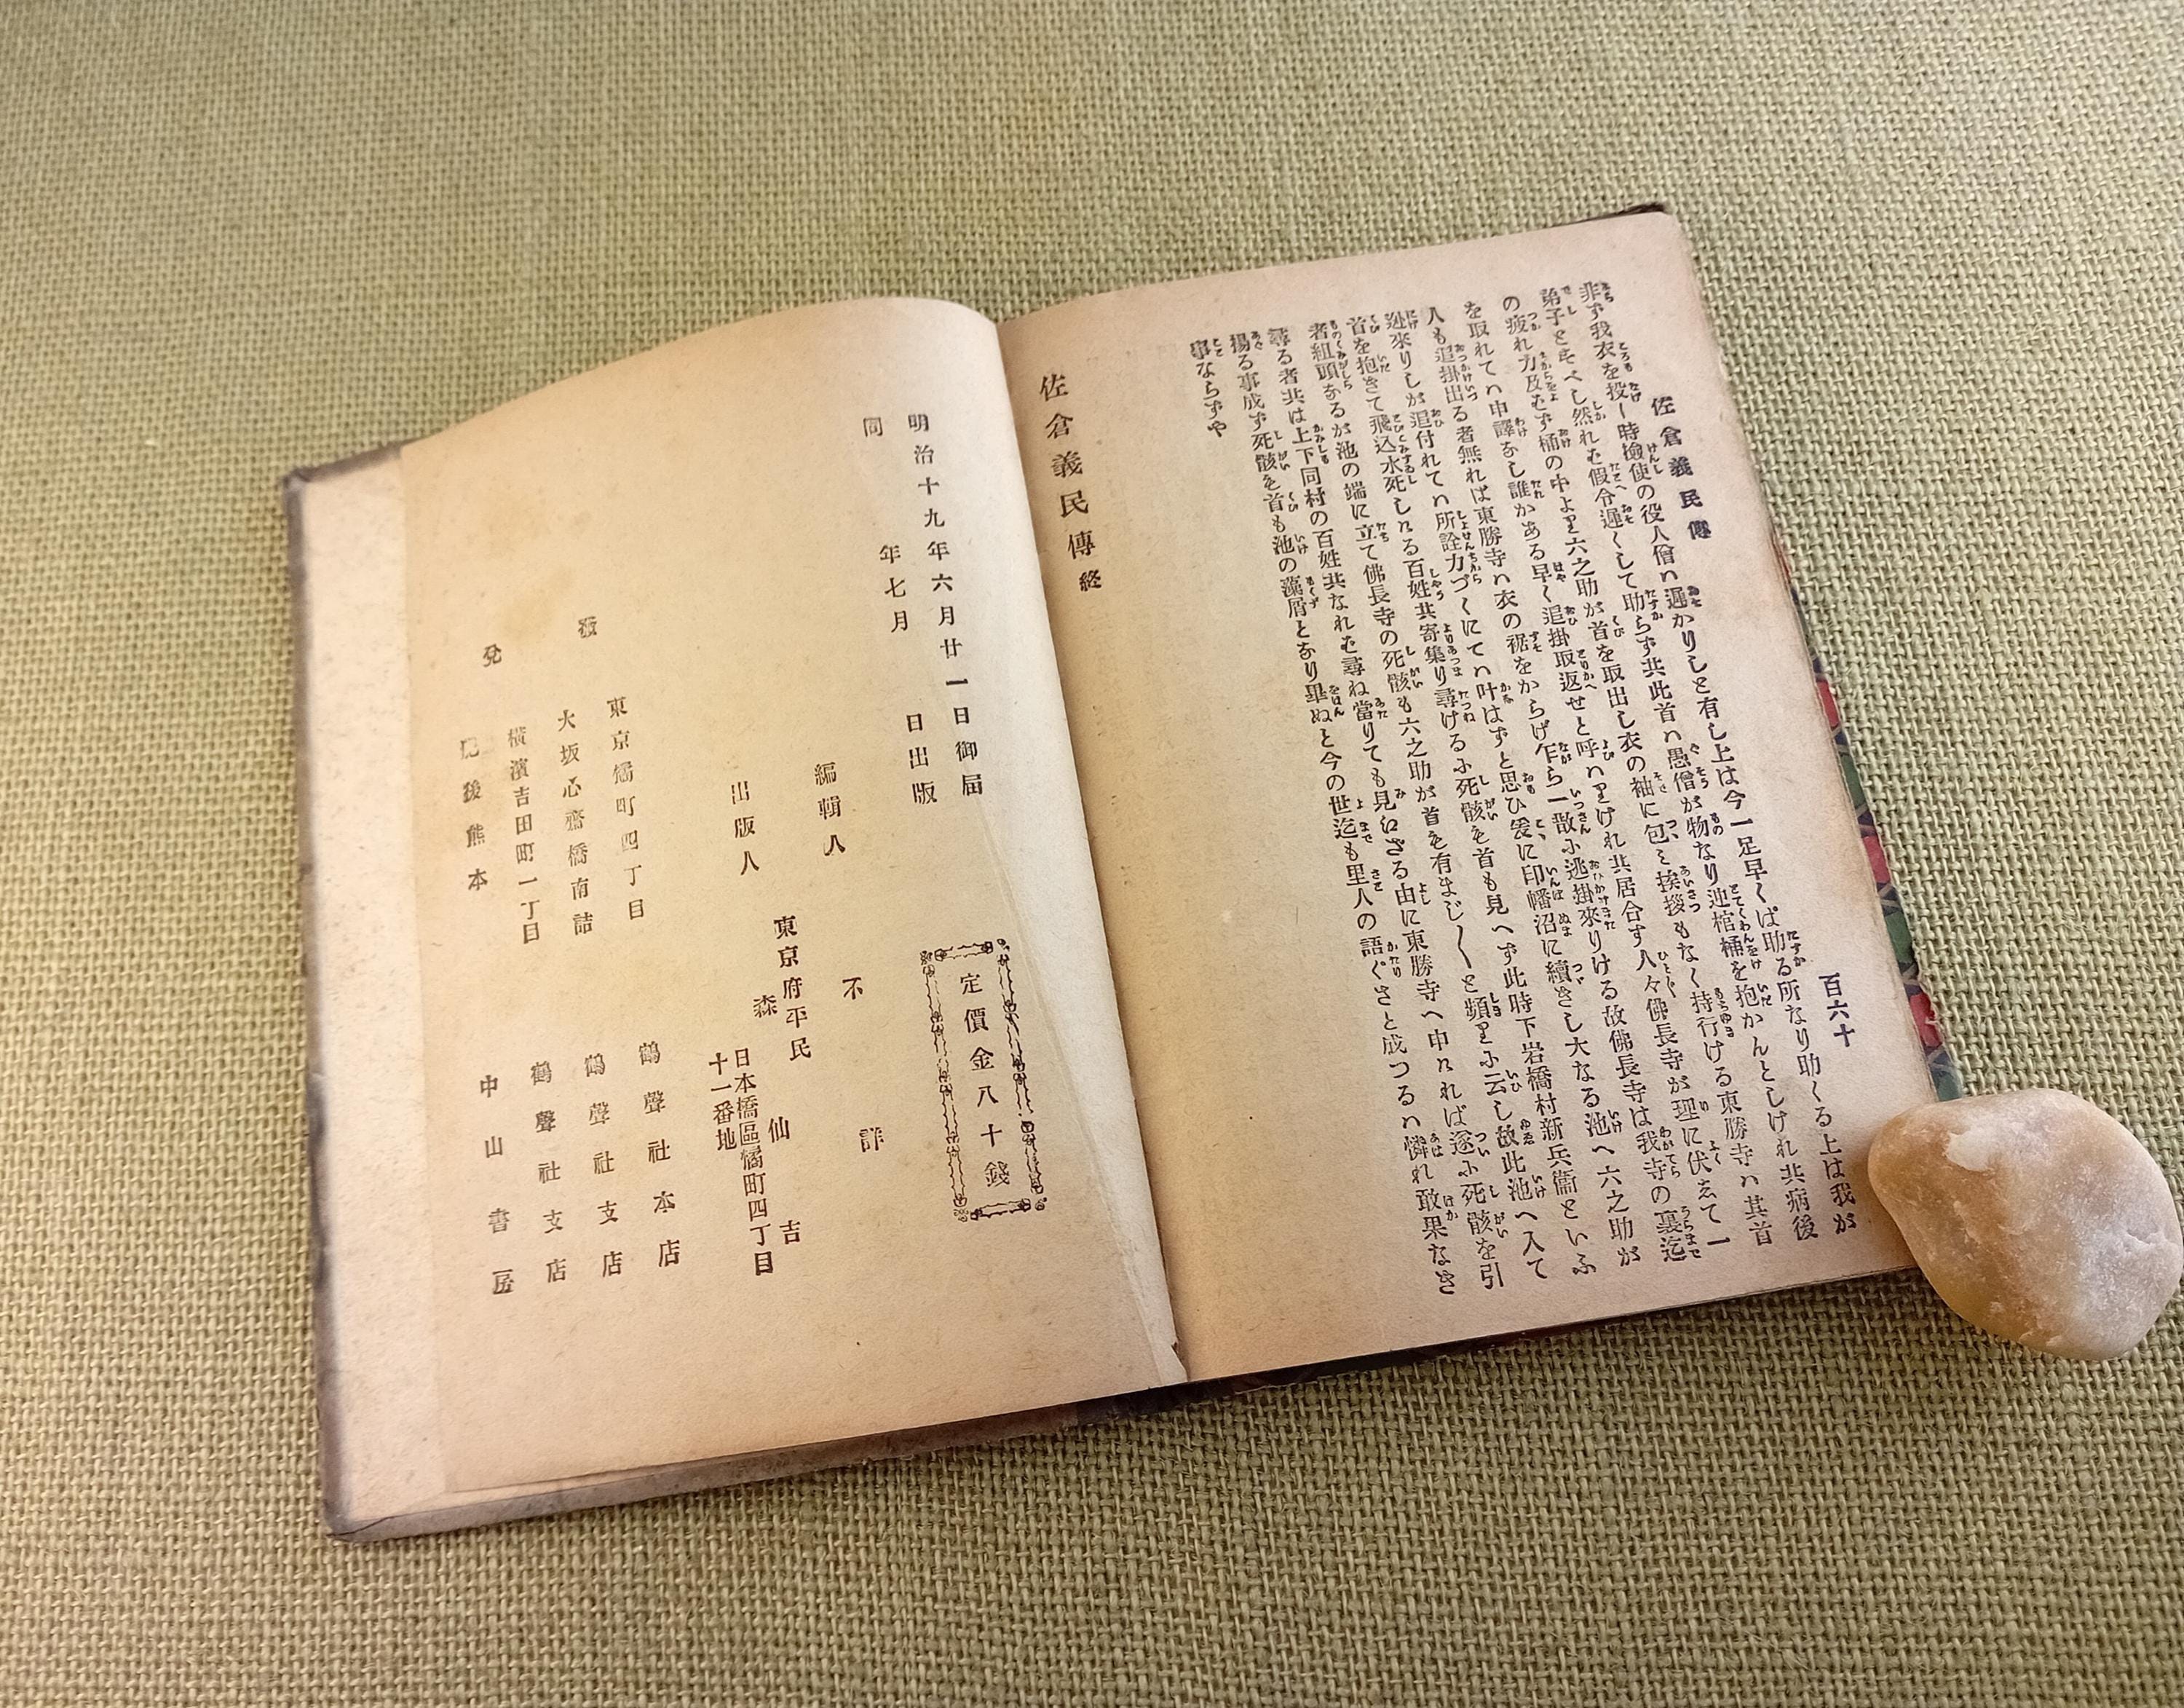 佐倉義民傳
百六十
非ず我衣を投し時撿使の役人僧ハ遲かりしと有し上は今一足早くば助る所なり助くる上は我が
弟子とすべし然れ𪜈假令遲くして助らず共此首ハ愚僧が物なり迚棺桶を抱かんとしけれ共病後
の疲れ力及ばず桶の中より六之助が首を取出し衣の袖に包ミ挨拶もなく持行ける東勝寺ハ其首
を取れてハ申譯なし誰かある早く追掛取返せと呼ハりけれ共居合す人々佛長寺が理に伏えて一
人も追掛出る者無れば東勝寺ハ衣の裾をからげ乍ら一散ふ逃掛來りける故佛長寺は我寺の裏迄
迯來りしが追付れてハ所詮力づくにてハ叶はずと思ひ爰に印幡沼に續きし大なる池へ六之助が
首を抱きて飛込水死しける百姓共寄集り尋けるふ死骸も首も見へず此時下岩橋村新兵衞といふ
者組頭なるが池の端に立て佛長寺の死骸も六之助が首も有まじ〳〵と頻りふ云し故此池へ入て
尋る者共は上下同村の百姓共なれば尋ね當りても見ゐざる由に東勝寺へ申ければ遂ふ死骸を引
揚る事成ず死骸も首も池の藻屑となり畢ぬと今の世迄も里人の語ぐさと成つるハ憐れ敢果なき
事ならずや
佐倉義民傳終
明治十九年六月廿一日御届
同年七月日出版
定價金八十錢
編輯人 不詳
出版人 東京府平民 森仙吉
日本橋區橘町四丁目
十一番地
發
兌
東京橘町四丁目 鶴聲社本店
大坂心齋橋南詰 鶴聲社支店
横濱吉田町一丁目 鶴聲社支店
肥後熊本 中山書房